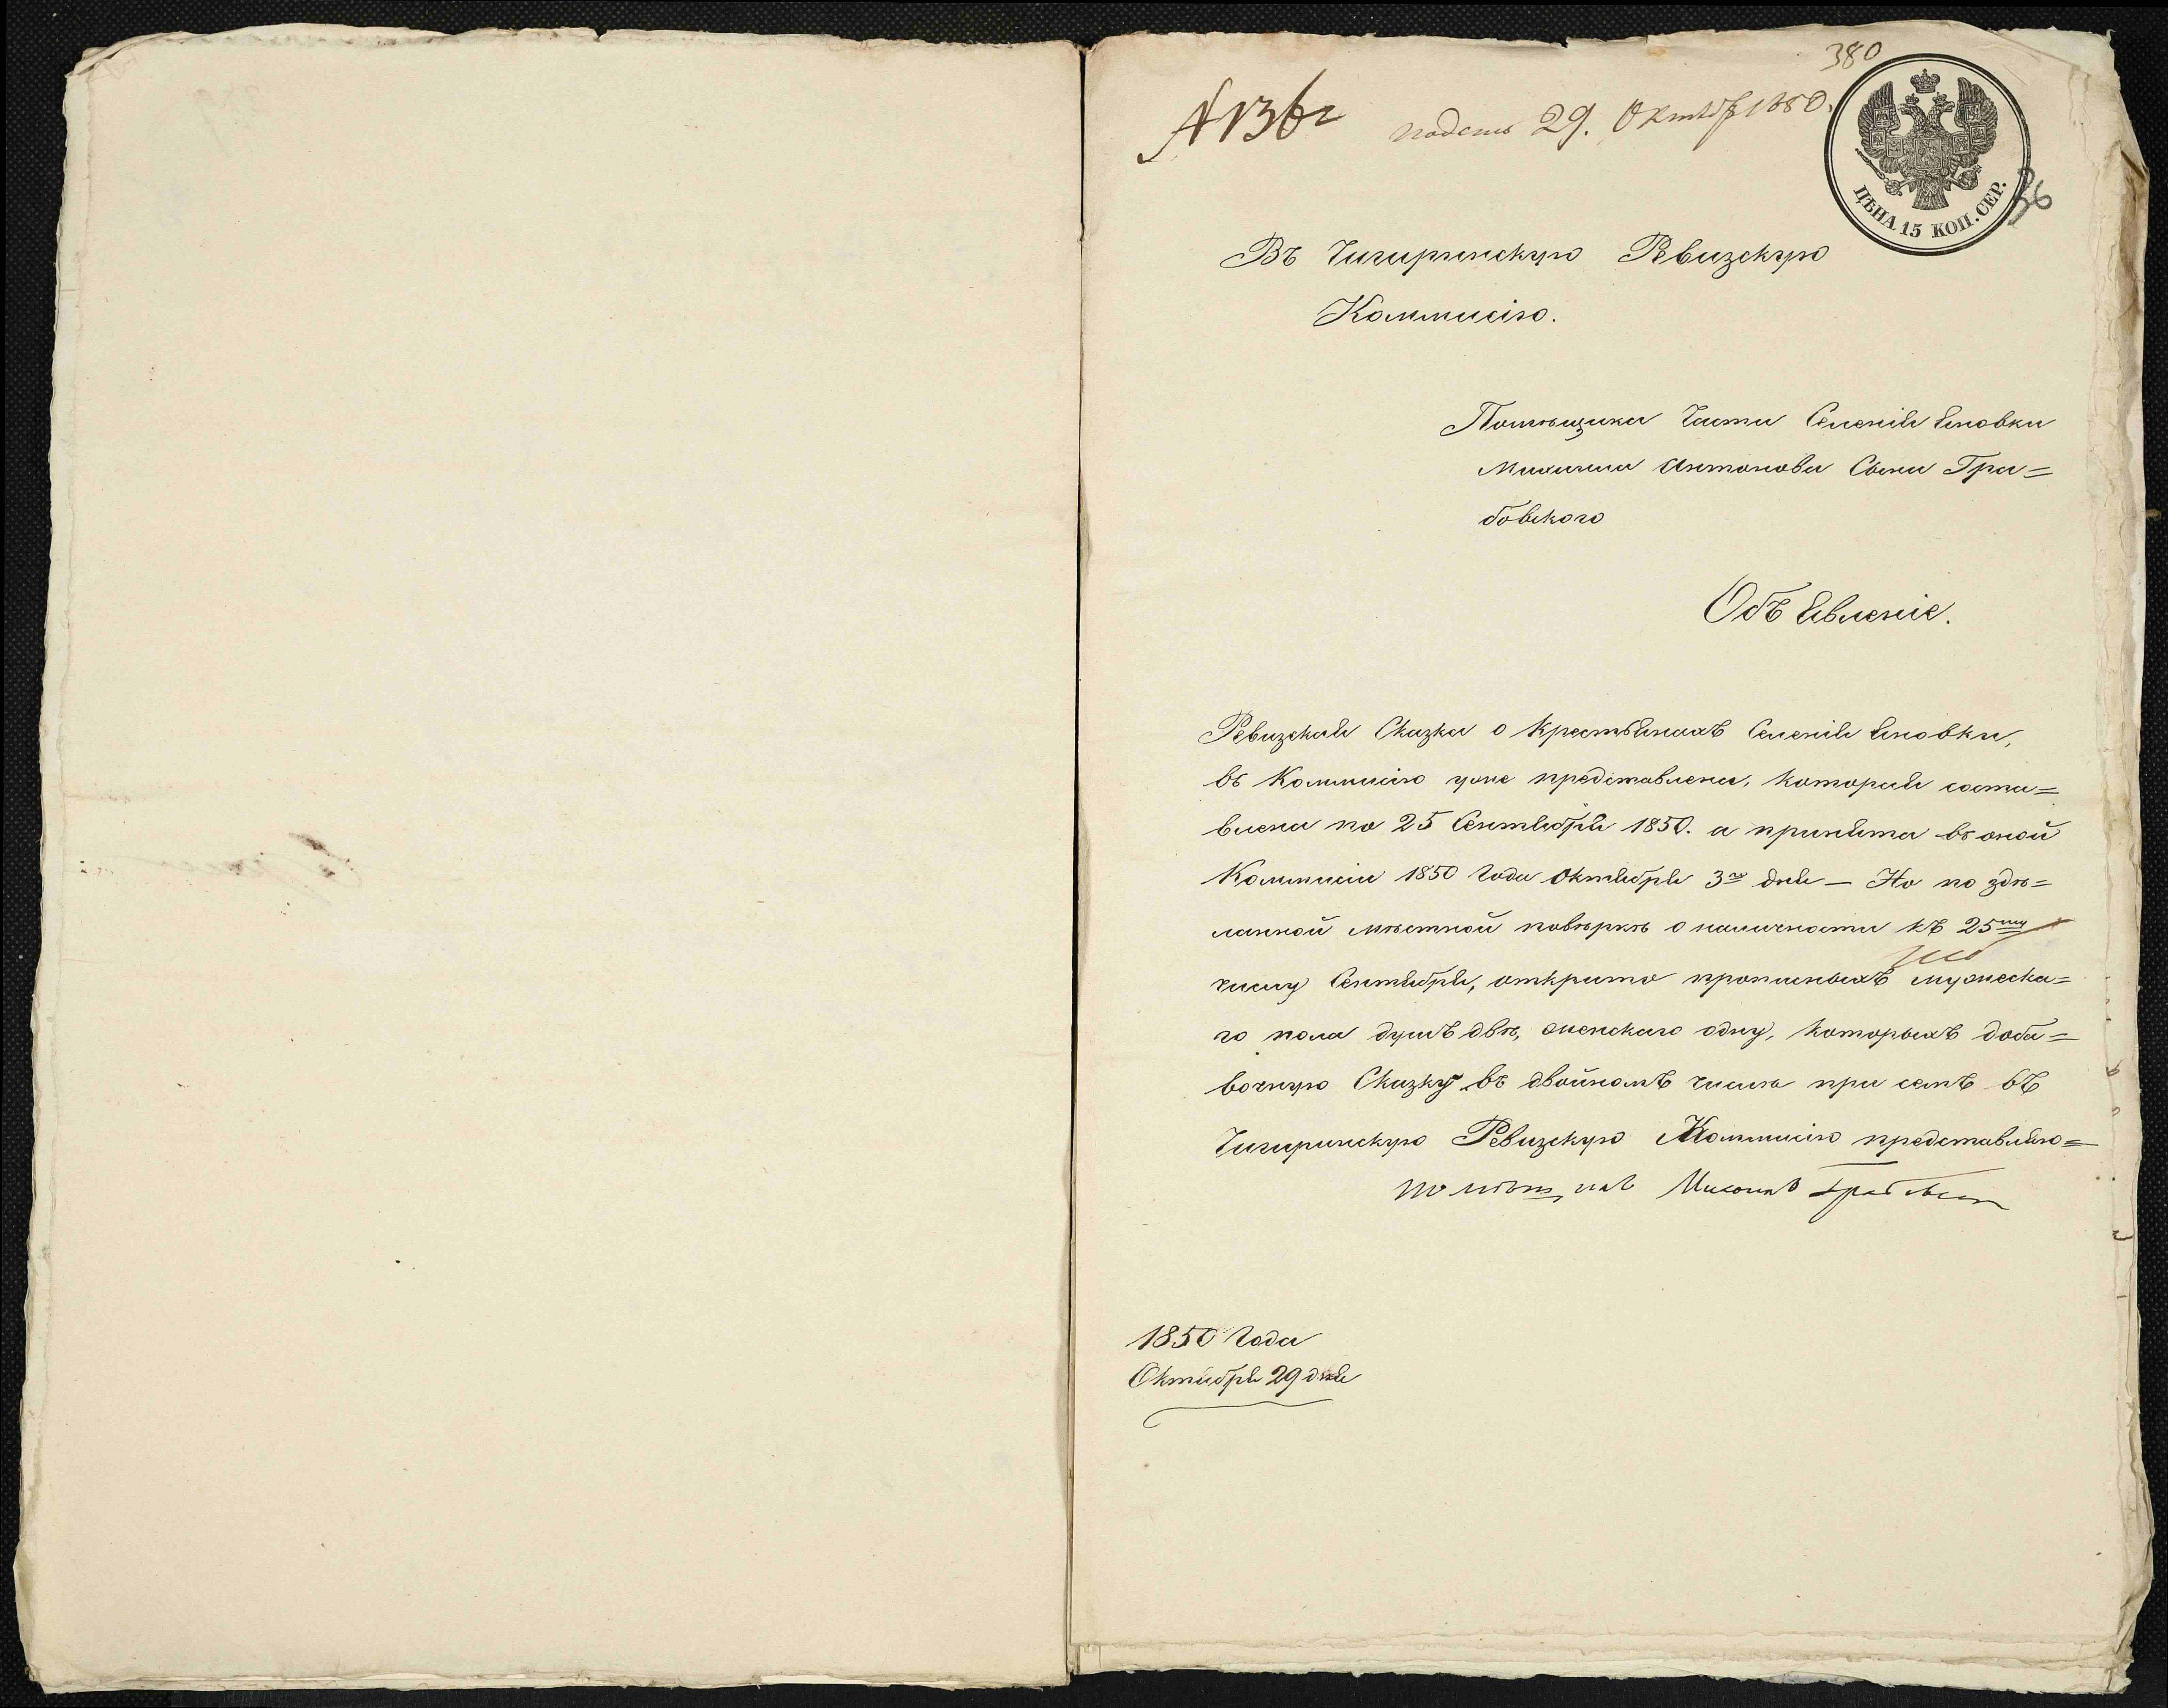 380
подано 29. Октяб 1850.
ЦѢНА 15 КОП. СЕР.
36
Въ Чигиринскую Ревизскую
Коммисію.
Помѣщика Части Селенія Яновки
Михаила Антонова Сына Гра=
бовского
Объявленіе.
Ревизская Сказка о Крестьянахъ Селенія Яновки,
въ Коммисію уже представлена, которая соста=
влена по 25 Сентября 1850. а принята въ оной
Коммисіи 1850 Года Октября 3го дня — Но по здѣ=
ланной мѣстной повѣркѣ о наличности къ 25му
числу Сентября, открыто прописныхъ мужеска=
го пола душъ двѣ, женскаго одну, которыхъ доба=
вочную Сказку въ двойномъ числѣ при семъ въ
Чигиринскую Ревизскую Коммисію представляю=
помѣщикъ Михаилъ Грабовски
1850 Года
Октября 29 дня